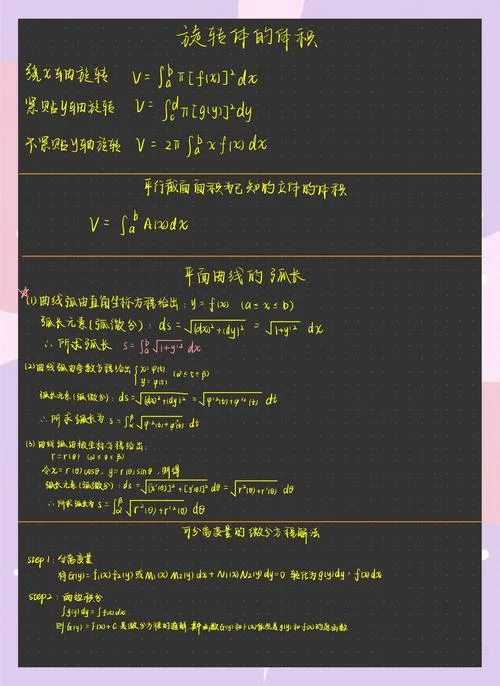 旋转体的体积
绕x轴旋转 V = ∫ₐᵇ π[f(x)]²dx
紧贴y轴旋转 V = ∫꜀ᵈ π[g(y)]²dy
不紧贴y轴旋转 V = 2π ∫ₐᵇ x f(x) dx
平行截面面积为已知的立体的体积
V = ∫ₐᵇ A(x)dx
平面曲线的弧长
(1) 曲线弧由直角坐标方程给出: y = f(x) (a ≤ x ≤ b)
弧长元素(弧微分): ds = √((dx)²+(dy)²) = √(1+y'²) dx
∴ 所求弧长 s = ∫ₐᵇ √(1+y'²) dx
(2) 曲线弧由参数方程给出 { x = φ(t)
y = ψ(t) (α ≤ t ≤ β)
弧长元素(弧微分): ds = √((dx)²+(dy)²) = √(φ'²(t)+ψ'²(t)) dt
∴ 所求弧长为 s = ∫ √(φ'²(t)+ψ'²(t)) dt
(3) 曲线弧由极坐标方程给出:
r = r(θ) (α ≤ θ ≤ β)
令x = r(θ)cosθ, y = r(θ)sinθ, 则得
弧长元素(弧微分): ds = √([x'(θ)]²+[y'(θ)]²) dθ = √(r²(θ)+r'²(θ)) dθ
∴ 所求弧长为 s = ∫_α^β √(r²(θ)+r'²(θ)) dθ
可分离变量的微分方程解法
step 1: 分离变量
将 = f₁(x) f₂(y) 或 M₁(x) M₂(y) dx + N₁(x) N₂(y) dy = 0 转化为 g(y) dy = f(x) dx
step 2: 两边积分
∫g(y) dy = ∫f(x) dx
则 G(y) = F(x) + C 是微分方程的通解, 其中函数G(y)和F(x)依次是g(y)和f(x)的原函数